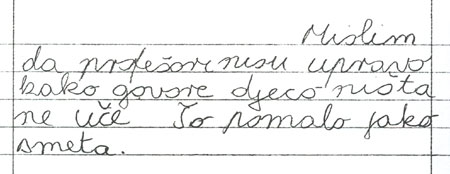 Mislim
da profešori nisu upravo
kako govore djeco ništa
ne uče To pomalo jako
smeta.